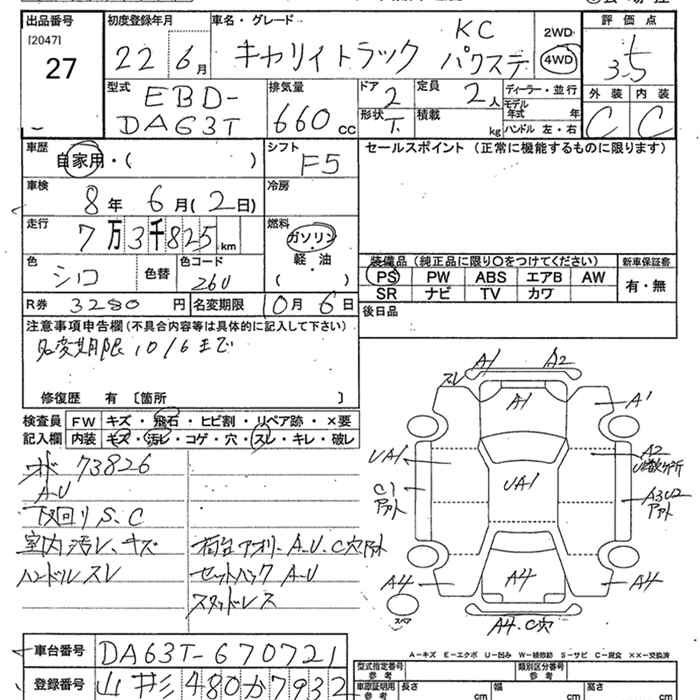 出品番号 初度登録年月 車名・グレード 評価点
[2047] 27
22年 6月 キャリイトラック KC パワステ 2WD 4WD 3.5
型式 EBD-DA63T 排気量 660 cc ドア 2 定員 2人 ディーラー・並行 外装 内装
形状 T. 積載 kg モデル年式 年 C C
ハンドル 左・右
車歴 自家用・( ) シフト F5 セールスポイント (正常に機能するものに限ります)
車検 8年 6月(2日) 冷房
走行 7万3千825km 燃料 ガソリン 軽・油 ( )
色 シロ 色替 色コード 26U
装備品 (純正品に限り○をつけてください) 新車保証書
PS PW ABS エアB AW 有・無
SR ナビ TV カワ
R券 3280円 名変期限 10月6日 後日品
注意事項申告欄 (不具合内容等は具体的に記入して下さい)
名変期限 10/6まで
修復歴 有 〔箇所 〕
検査員 FW キズ・飛石・ヒビ割・リペア跡・×要
記入欄 内装 キズ・汚レ・コゲ・穴・スレ・キレ・破レ
73826
A-U
下回りS、C
室内汚レ、キズ 荷台アオリ-A.U.C穴
ハンドルスレ セットバックA-U
スタッドレス
A1 A2
スレ A1 A1
UA1 UA1 A2
C1 A3U2
A4 A4 A4
スペア A4.C穴
A-キズ E-エクボ U-凹み W-補修跡 S-サビ C-腐食 ××-交換済
車台番号 DA63T-670721
登録番号 480か7932
型式指定番号 参考 類別区分番号 参考
車庫証明用 参考 長さ cm 幅 cm 高さ cm